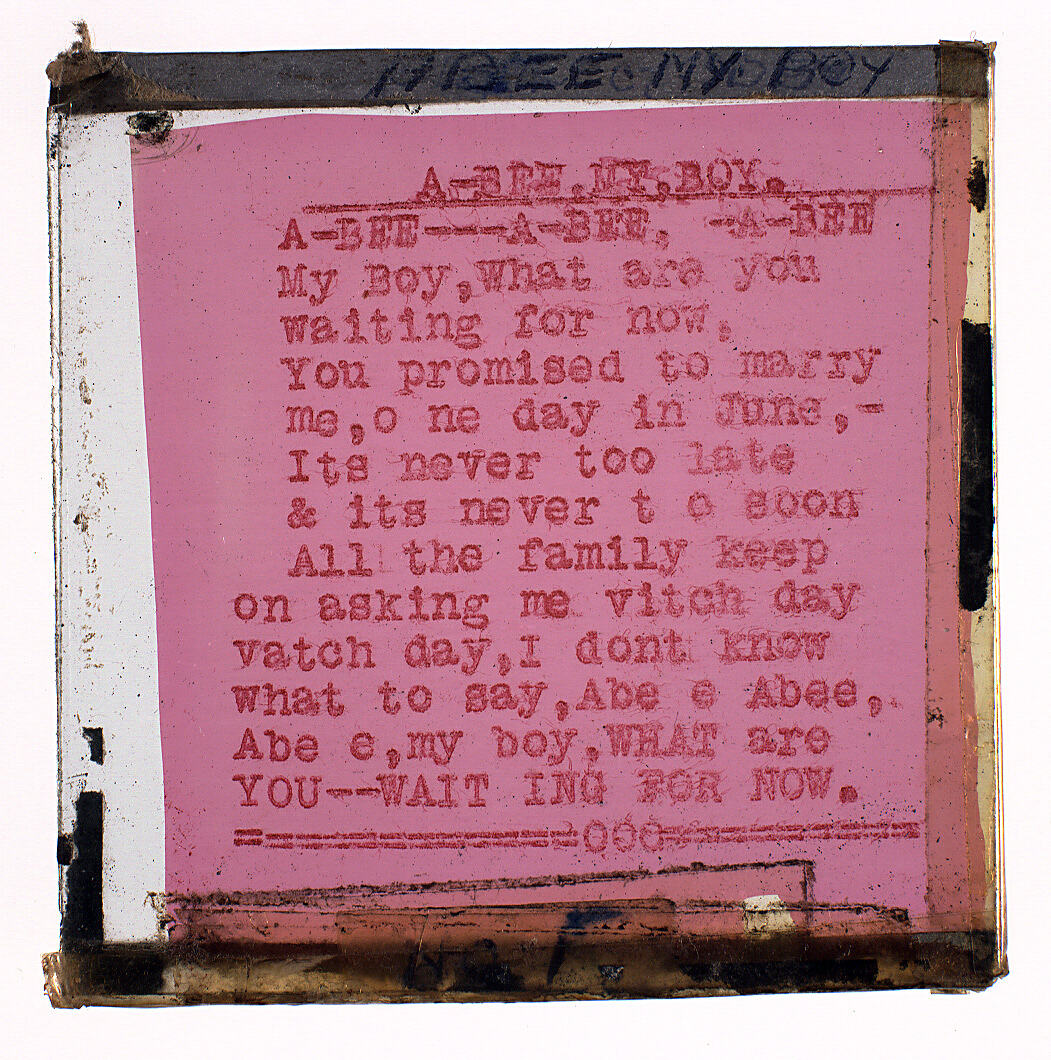 ABEE MY BOY
A-BEE,MY,BOY.
A-BEE---A-BEE, -A-BEE
My Boy,What are you
waiting for now,
You promised to marry
me,o ne day in June,-
Its never too late
& its never t o soon
All the family keep
on asking me vitch day
vatch day,I dont know
What to say,Abe e Abee,.
Abe e,my boy,WHAT are
YOU--WAIT ING FOR NOW.
=-==============-000-===============